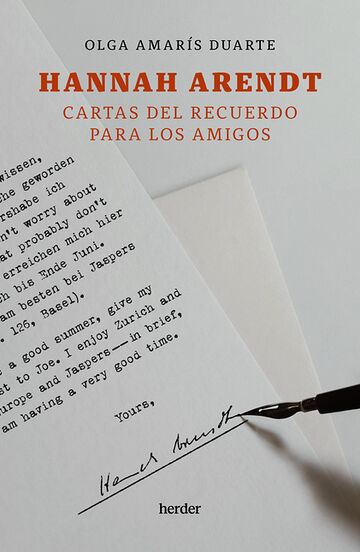 OLGA AMARÍS DUARTE
HANNAH ARENDT
CARTAS DEL RECUERDO
PARA LOS AMIGOS
wissen,
che geworden
ershabe ich
n't worry about
at probably don't
erreichen mich hier
h bis Ende Juni.
am besten bei Jaspers
. 126, Basel).
e a good summer, give my
st to Joe. I enjoy Zurich and
urope and Jaspers—in brief,
am having a very good time.
Yours,
Hannah Arendt
herder